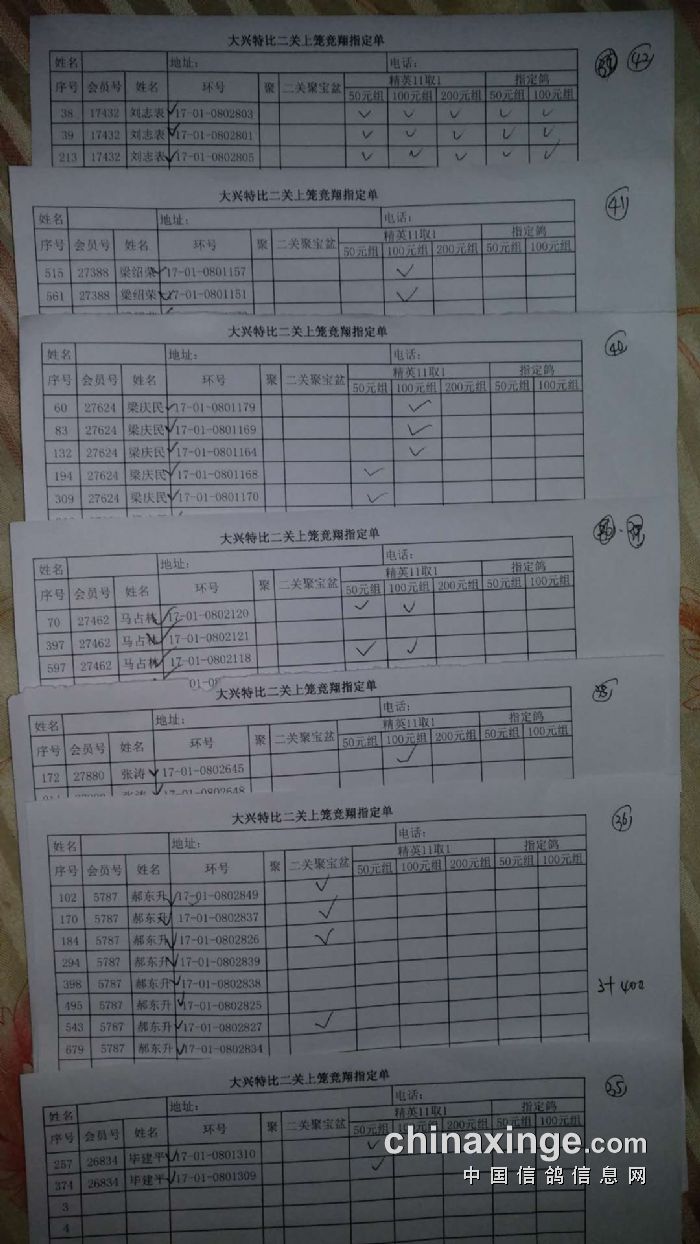 大兴特比二关上笼竞翔指定单
姓名 地址: 电话: 42
序号 会员号 姓名 环号 聚 二关聚宝盆 精英11取1 指定鸽
50元组 100元组 200元组 50元组 100元组
38 17432 刘志表 ✓ 17-01-0802803 ✓ ✓ ✓ ✓ ✓
39 17432 刘志表 ✓ 17-01-0802801 ✓ ✓ ✓ ✓ ✓
213 17432 刘志表 ✓ 17-01-0802805 ✓ ✓ ✓ ✓ ✓
大兴特比二关上笼竞翔指定单
姓名 地址: 电话: 41
序号 会员号 姓名 环号 聚 二关聚宝盆 精英11取1 指定鸽
50元组 100元组 200元组 50元组 100元组
515 27388 梁绍荣 ✓ 17-01-0801157 ✓
561 27388 梁绍荣 ✓ 17-01-0801151 ✓
大兴特比二关上笼竞翔指定单
姓名 地址: 电话: 40
序号 会员号 姓名 环号 聚 二关聚宝盆 精英11取1 指定鸽
50元组 100元组 200元组 50元组 100元组
60 27624 梁庆民 ✓ 17-01-0801179 ✓
83 27624 梁庆民 ✓ 17-01-0801169 ✓
132 27624 梁庆民 ✓ 17-01-0801164 ✓
194 27624 梁庆民 ✓ 17-01-0801168 ✓
309 27624 梁庆民 ✓ 17-01-0801170 ✓
大兴特比二关上笼竞翔指定单
姓名 地址: 电话:
序号 会员号 姓名 环号 聚 二关聚宝盆 精英11取1 指定鸽
50元组 100元组 200元组 50元组 100元组
70 27462 马占林 ✓ 17-01-0802120 ✓ ✓
397 27462 马占林 ✓ 17-01-0802121
597 27462 马占林 ✓ 17-01-0802118 ✓ ✓
大兴特比二关上笼竞翔指定单
姓名 地址: 电话:
序号 会员号 姓名 环号 聚 二关聚宝盆 精英11取1 指定鸽
50元组 100元组 200元组 50元组 100元组
172 27880 张涛 ✓ 17-01-0802645 ✓
张涛 ✓ 17-01-0802648
大兴特比二关上笼竞翔指定单
姓名 地址: 电话: 36
序号 会员号 姓名 环号 聚 二关聚宝盆 精英11取1 指定鸽
50元组 100元组 200元组 50元组 100元组
102 5787 郝东升 ✓ 17-01-0802849 ✓
170 5787 郝东升 ✓ 17-01-0802837 ✓
184 5787 郝东升 ✓ 17-01-0802826 ✓
294 5787 郝东升 ✓ 17-01-0802839
398 5787 郝东升 ✓ 17-01-0802838
495 5787 郝东升 ✓ 17-01-0802825
543 5787 郝东升 ✓ 17-01-0802827 ✓
679 5787 郝东升 ✓ 17-01-0802834
大兴特比二关上笼竞翔指定单
姓名 地址: 电话: 35
序号 会员号 姓名 环号 聚 二关聚宝盆 精英11取1 指定鸽
50元组 100元组 200元组 50元组 100元组
257 26834 毕建平 ✓ 17-01-0801310 ✓
374 26834 毕建平 ✓ 17-01-0801309 ✓
3
4
chinaxinge.com
中国信鸽信息网